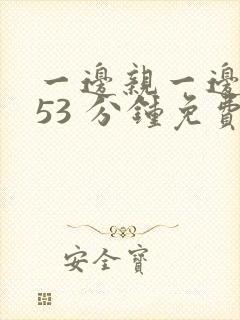 一邊親一邊
53 分鍾免費
安全寶